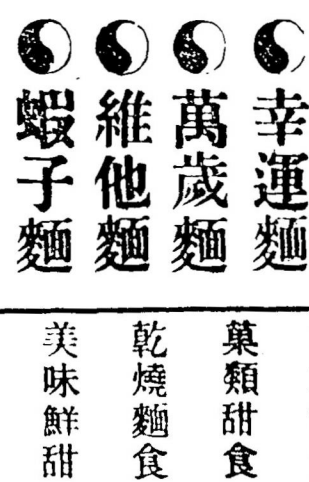 幸運麵
萬歲麵
維他麵
蝦子麵
菓類甜食
乾燒麵食
美味鮮甜